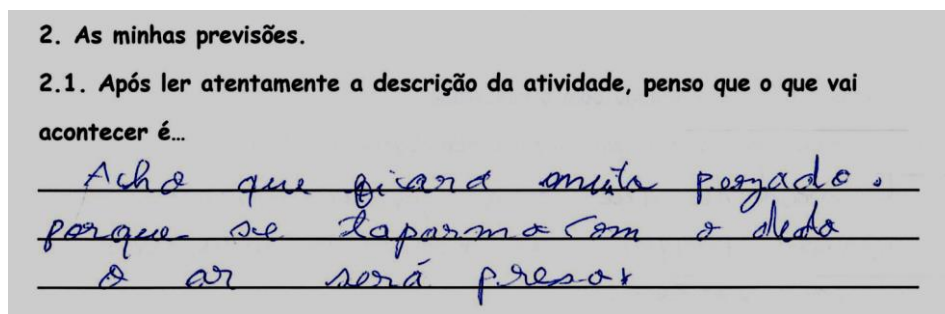 2. As minhas previsões.
2.1. Após ler atentamente a descrição da atividade, penso que o que vai
acontecer é...
Acho que ficara muito
porque se taparmo com o dedo
o ar será preso.